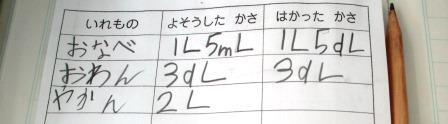 いれもの よそうした かさ はかった かさ
おなべ 1L5mL 1L5dL
おわん 3dL 3dL
やかん 2L